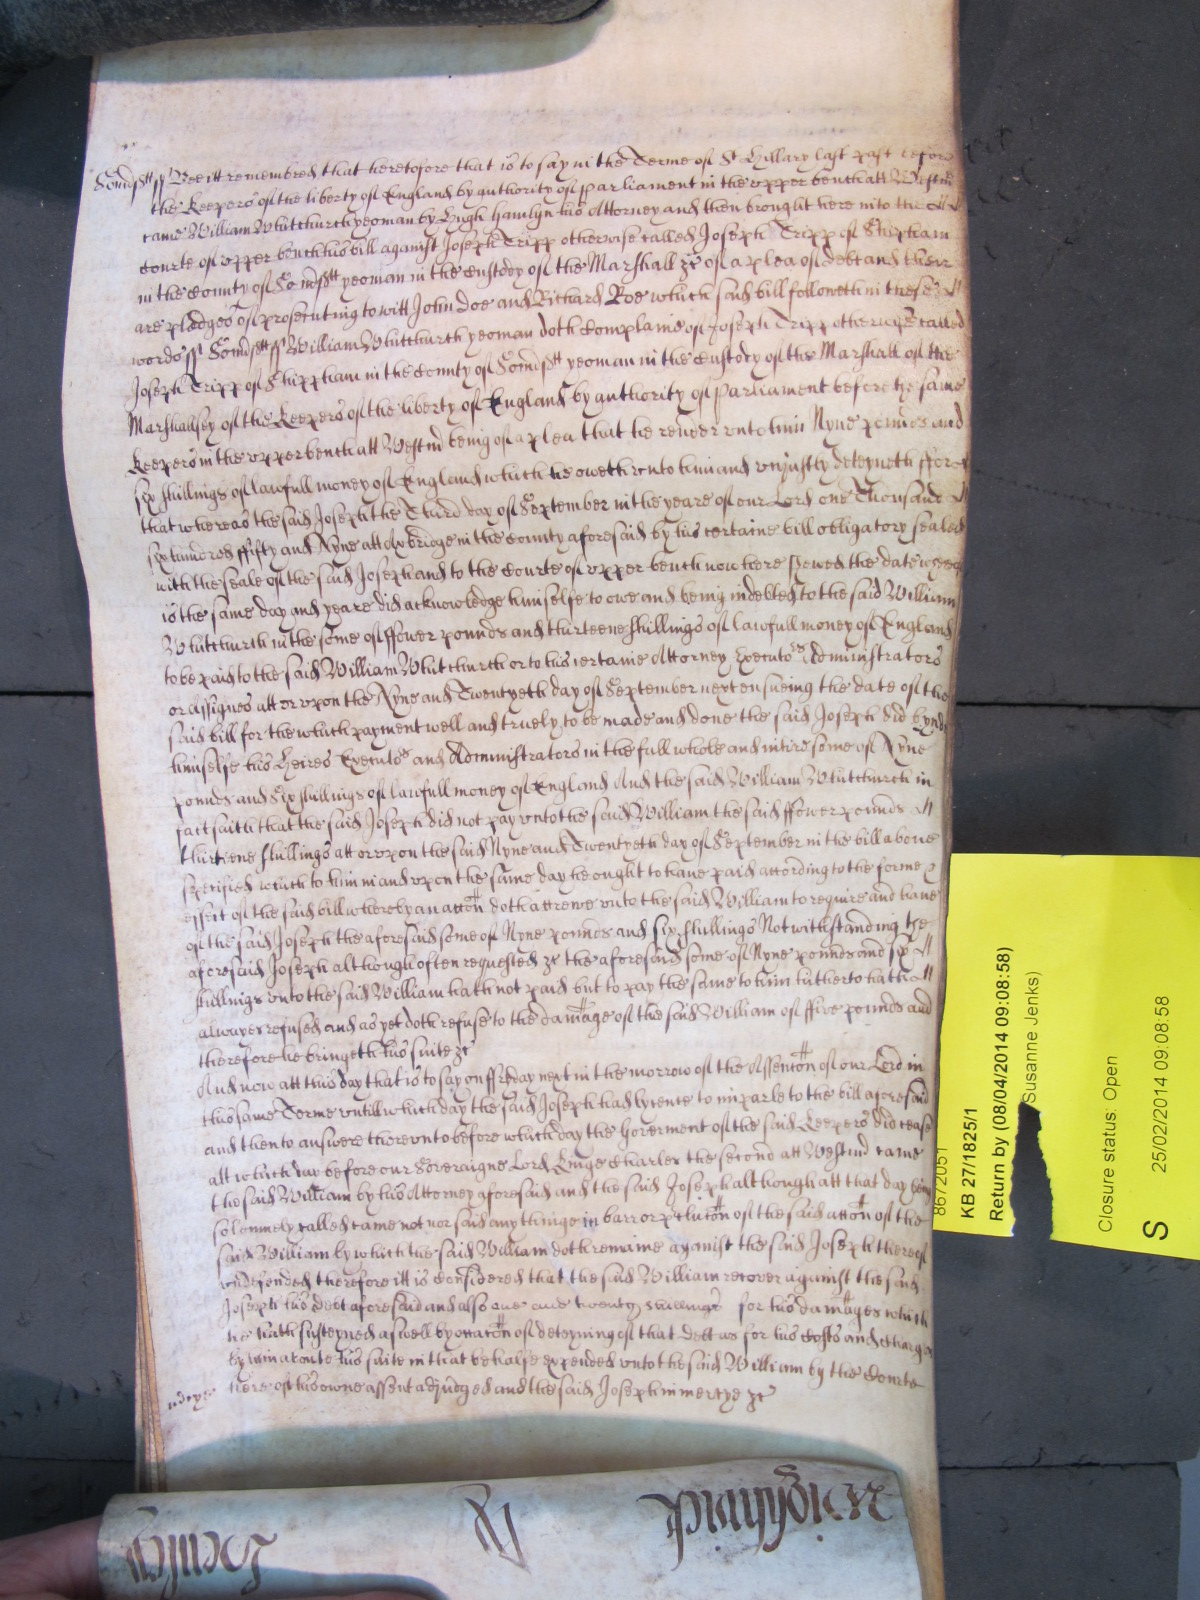 Somsett ss Bee itt remembred that heretofore that is to say in the Terme of St Hillary last past before
the Keepers of the liberty of England by authority of parliament in the vpper bench att Westm
came William Whitchurch yeoman by Hugh Hamlyn his Attorney and then brought here into the
Courte of vpper bench his bill against Joseph Tripp otherwise called Joseph Tripp of Shipham
in the County of Somsett yeoman in the Custody of the Marshall &c of a plea of debt and there
are pledges of prosecuting to witt John Doe and Richard Roe which said bill followeth in these
words ss Somsett ss William Whitchurch yeoman doth Complaine of Joseph Tripp otherwise called
Joseph Tripp of Shippham in the County of Somsett yeoman in the Custody of the Marshall of the
Marshallsey of the Keepers of the liberty of England by authority of parliament before the same
Keepers in the vpper bench att Westm being of a plea that he render vnto him Nyne pounds and
six shillings of lawfull money of England which he oweth vnto him and vniustly deteyneth ffor
that whereas the said Joseph the Third day of September in the yeare of our Lord one Thousand
six hundred ffifty and Nyne att Axbridge in the County aforesaid by his certaine bill obligatory sealed
with the seale of the said Joseph and to the Courte of vpper bench now here shewed the date whereof
is the same day and yeare did acknowledge himselfe to owe and being indebted to the said William
Whitchurch in the some of ffower pounds and thirteene shillings of lawfull money of England
to be paid to the said William Whitchurch or to his certaine Attorney Executors Administrators
or Assignes att or vpon the Nyne and Twentyeth day of September next ensueing the date of the
said bill for the which payment well and truely to be made and done the said Joseph did bynd
himselfe his Heires Executors and Administrators in the full whole and intire some of Nyne
pounds and Six shillings of lawfull money of England And the said William Whitchurch in
fact saith that the said Joseph did not pay vnto the said William the said ffower pounds
thirteene shillings att or vpon the said Nyne and Twentyeth day of September in the bill aboue
specified which to him in and vpon the same day he ought to haue paid according to the forme &
effect of the said bill whereby an accon doth accrewe vnto the said William to require and haue
of the said Joseph the aforesaid some of Nyne pounds and six shillings Notwithstanding the
aforesaid Joseph although often requested &c the aforesaid some of Nyne pounds and six
shillings vnto the said William hath not paid but to pay the same to him hitherto hath
alwayes refused and as yet doth refuse to the damage of the said William of ffive pounds and
therefore he bringeth his suite &c
And now att this day that is to say on ffryday next in the morrow of the Assention of our Lord in
this same Terme vntill which day the said Joseph had lycence to imparle to the bill aforesaid
and then to answere therevnto before which day the Goverment of the said Keepers did cease
att which day before our Soveraigne Lord Kinge Charles the second att Westm came
the said William by his Attorney aforesaid and the said Joseph although att that day being
solemnely called came not nor said any thinge in barr or preclucon of the said accon of the
said William by which the said William doth remaine against the said Joseph thereof
vndefended therefore itt is Considered that the said William recover against the said
Joseph his debt aforesaid and also one and twenty shillings for his damages which
he hath susteyned aswell by occacon of deteyning of that debt as for his Costs and Charges
by him aboute his suite in that behalfe expended vnto the said William by the Courte
here of his owne assent adiudged and the said Joseph in mercye &c
8672051
KB 27/1825/1
Return by (08/04/2014 09:08:58)
Susanne Jenks)
Closure status: Open
S
25/02/2014 09:08:58